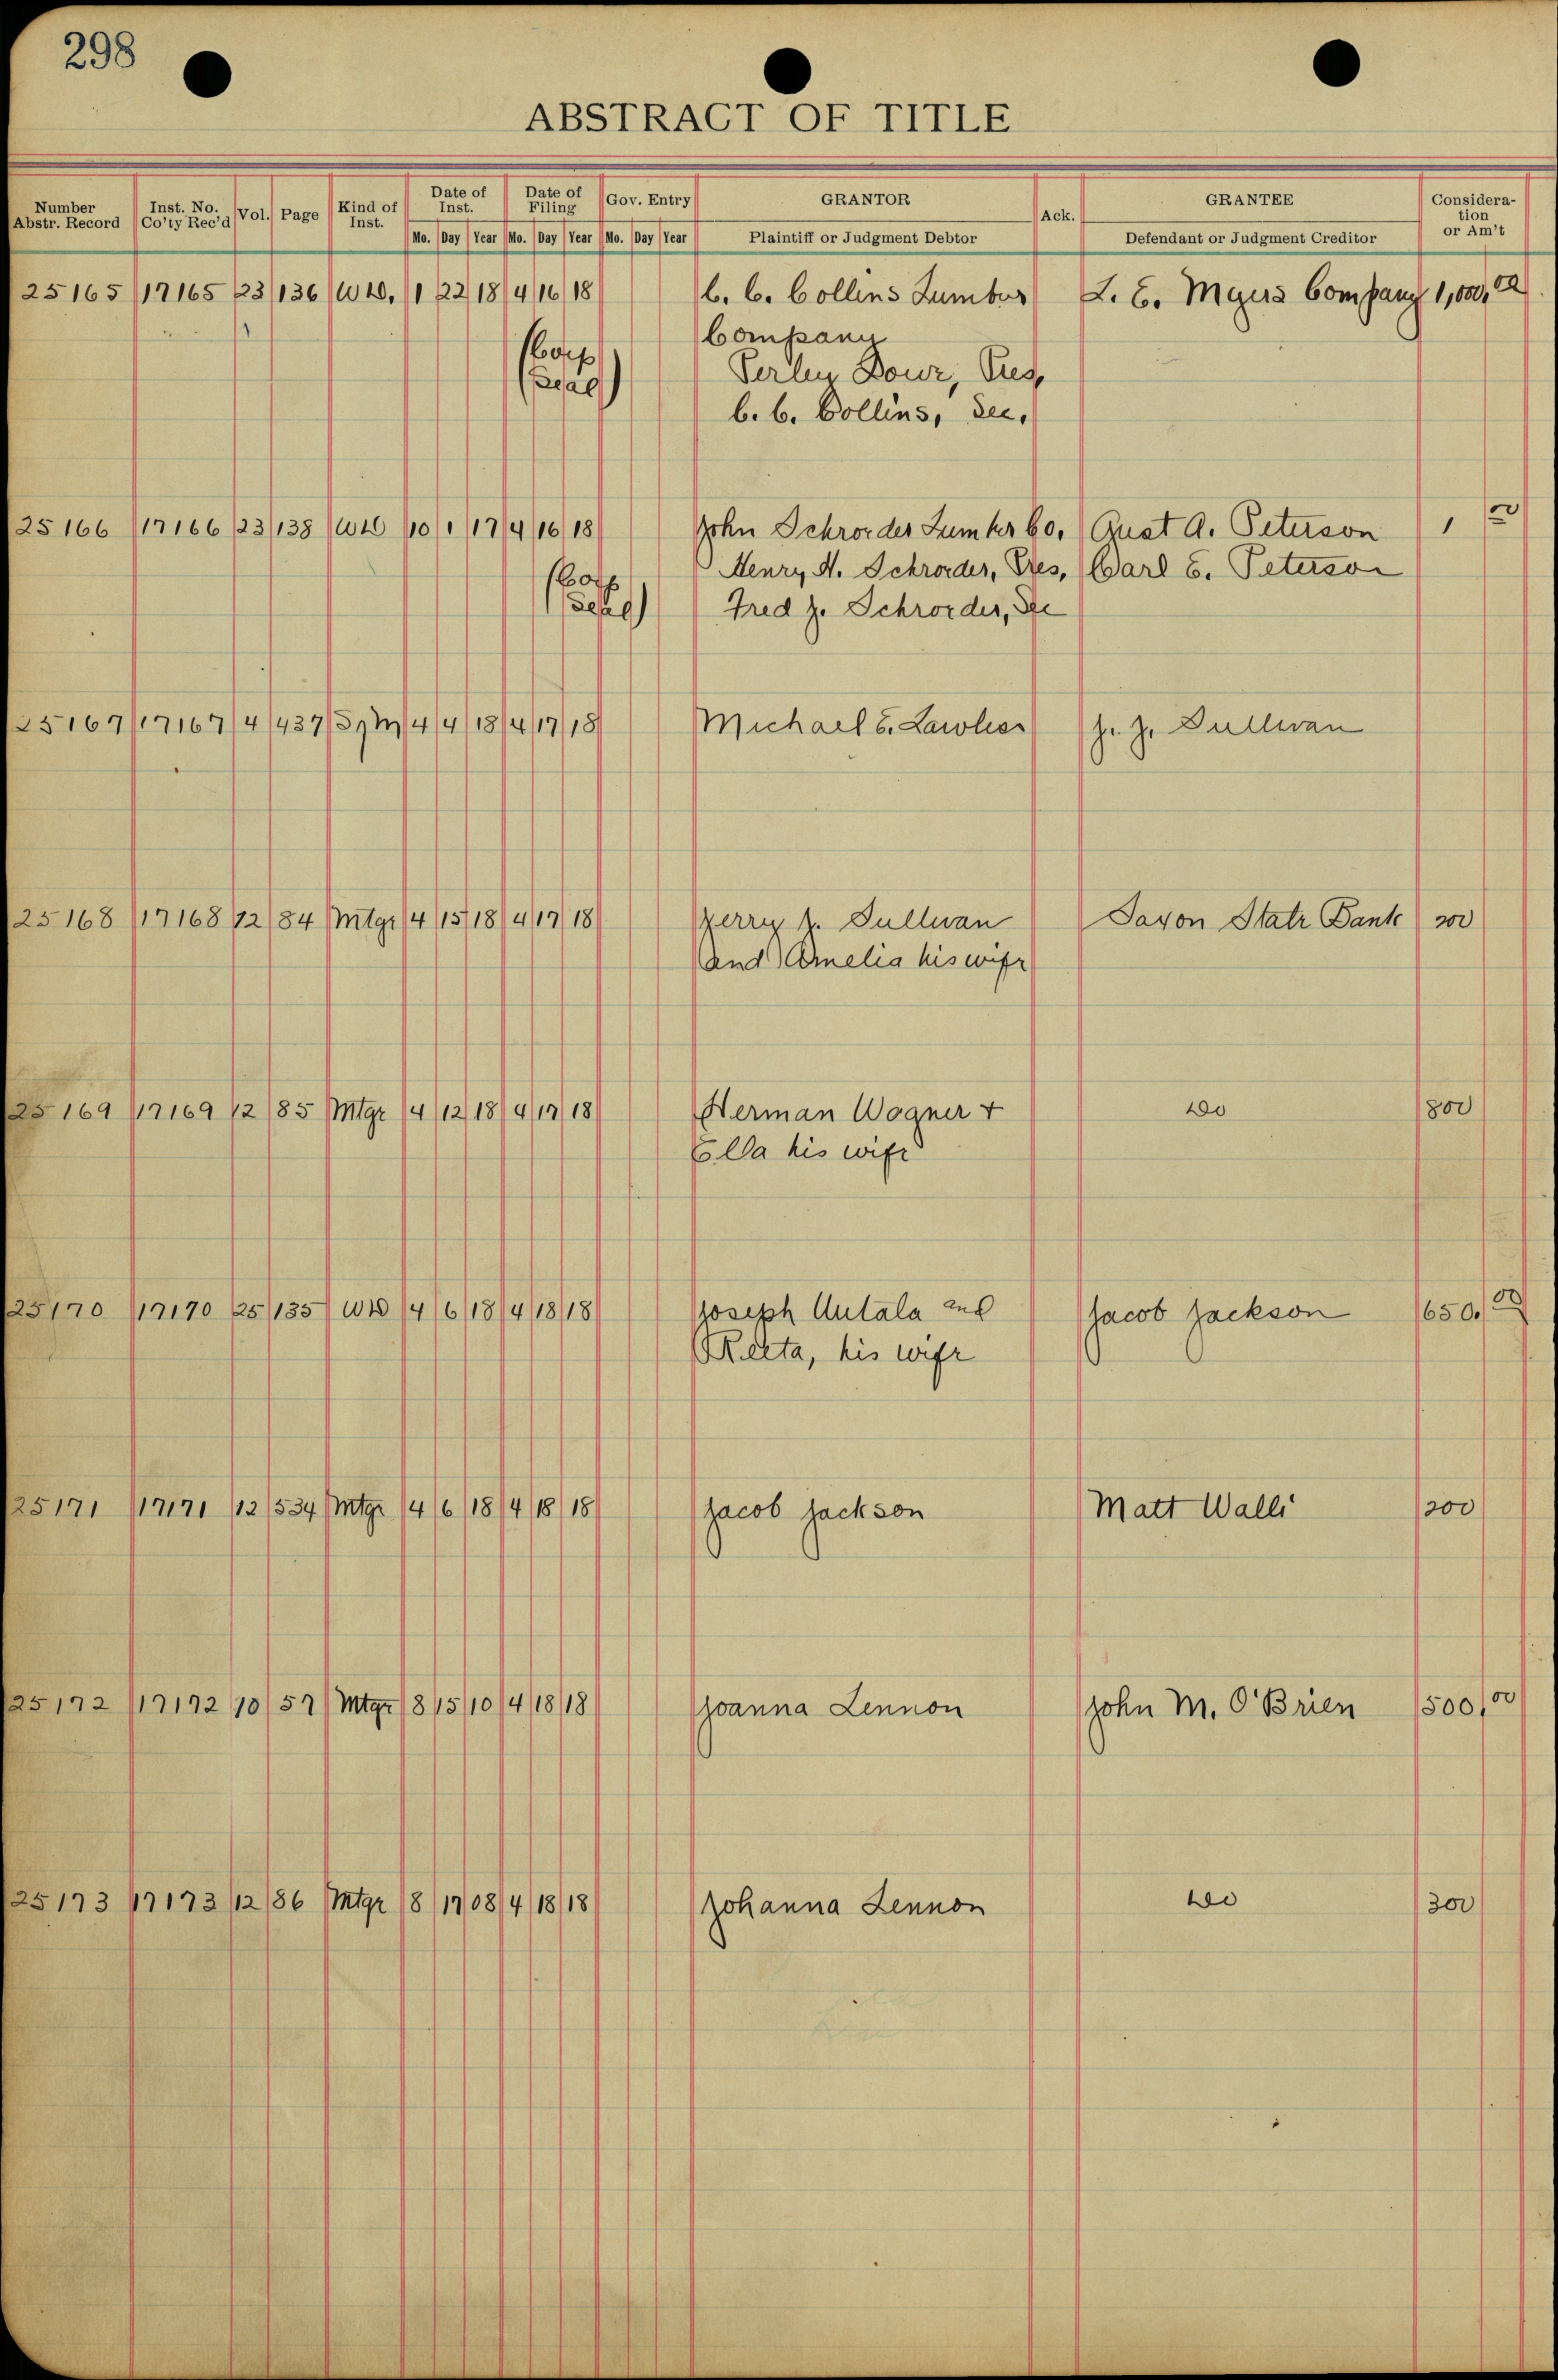 298
ABSTRACT OF TITLE
Number Abstr. Record Inst. No. Co'ty Rec'd Vol. Page Kind of Inst. Date of Inst. Date of Filing Gov. Entry GRANTOR Ack. GRANTEE Considera-tion or Am't
Mo. Day Year Mo. Day Year Mo. Day Year Plaintiff or Judgment Debtor Defendant or Judgment Creditor
25165 17165 23 136 WD. 1 22 18 4 16 18 C. C. Collins Lumber L. E. Myers Company 1,000.00
Company
(Corp Pres.
Seal) C. C. Collins, Sec.
25166 17166 23 138 WD 10 1 17 4 16 18 John Schroeder Lumber Co. Gust A. Peterson 1 00
Henry A. Schroeder, Pres, Carl E. Peterson
(Corp Seal) Fred J. Schroeder, Sec
25167 17167 4 437 4 4 18 4 17 18 Michael E. Lawler J. J. Sullivan
25168 17168 12 84 Mtge 4 15 18 4 17 18 Jerry J. Sullivan Saxon State Bank 200
and Amelia his wife
25169 17169 12 85 Mtge 4 12 18 4 17 18 Herman Wagner + do 800
Ella his wife
25170 17170 25 135 WD 4 6 18 4 18 18 Joseph Autala and Jacob Jackson 650.00
Reeta, his wife
25171 17171 12 534 Mtge 4 6 18 4 18 18 Jacob Jackson Matt Walli 200
25172 17172 10 57 Mtge 8 15 10 4 18 18 Joanna Lennon John M. O'Brien 500.00
25173 17173 12 86 Mtge 8 17 08 4 18 18 Johanna Lennon do 300